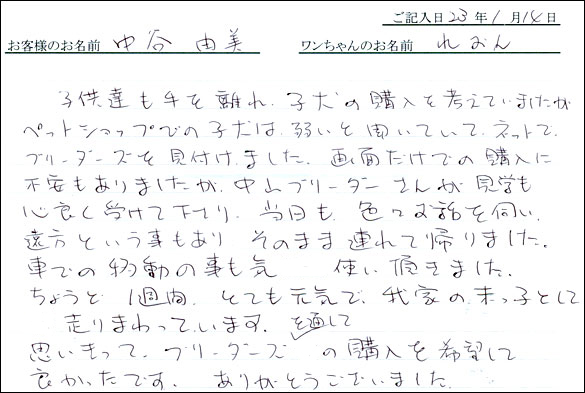 ご記入日 23 年 1 月 14 日
お客様のお名前 中谷 由美 ワンちゃんのお名前 れおん
子供達も手を離れ、子犬の購入を考えていましたが
ペットショップでの子犬は、弱いと聞いていて、ネットで、
ブリーダーズを見付けました。画面だけでの購入に
不安もありましたが、中山ブリーダーさんが見学も
心良く受けて下さり、当日も、色々お話を伺い、
遠方という事もあり そのまま連れて帰りました。
車での移動の事も気 使い頂きました。
ちょうど 1週間、とても元気で、我家の末っ子として
走りまわっています。
を通して
思いきって、ブリーダーズ の購入を希望して
良かったです。 ありがとうございました。